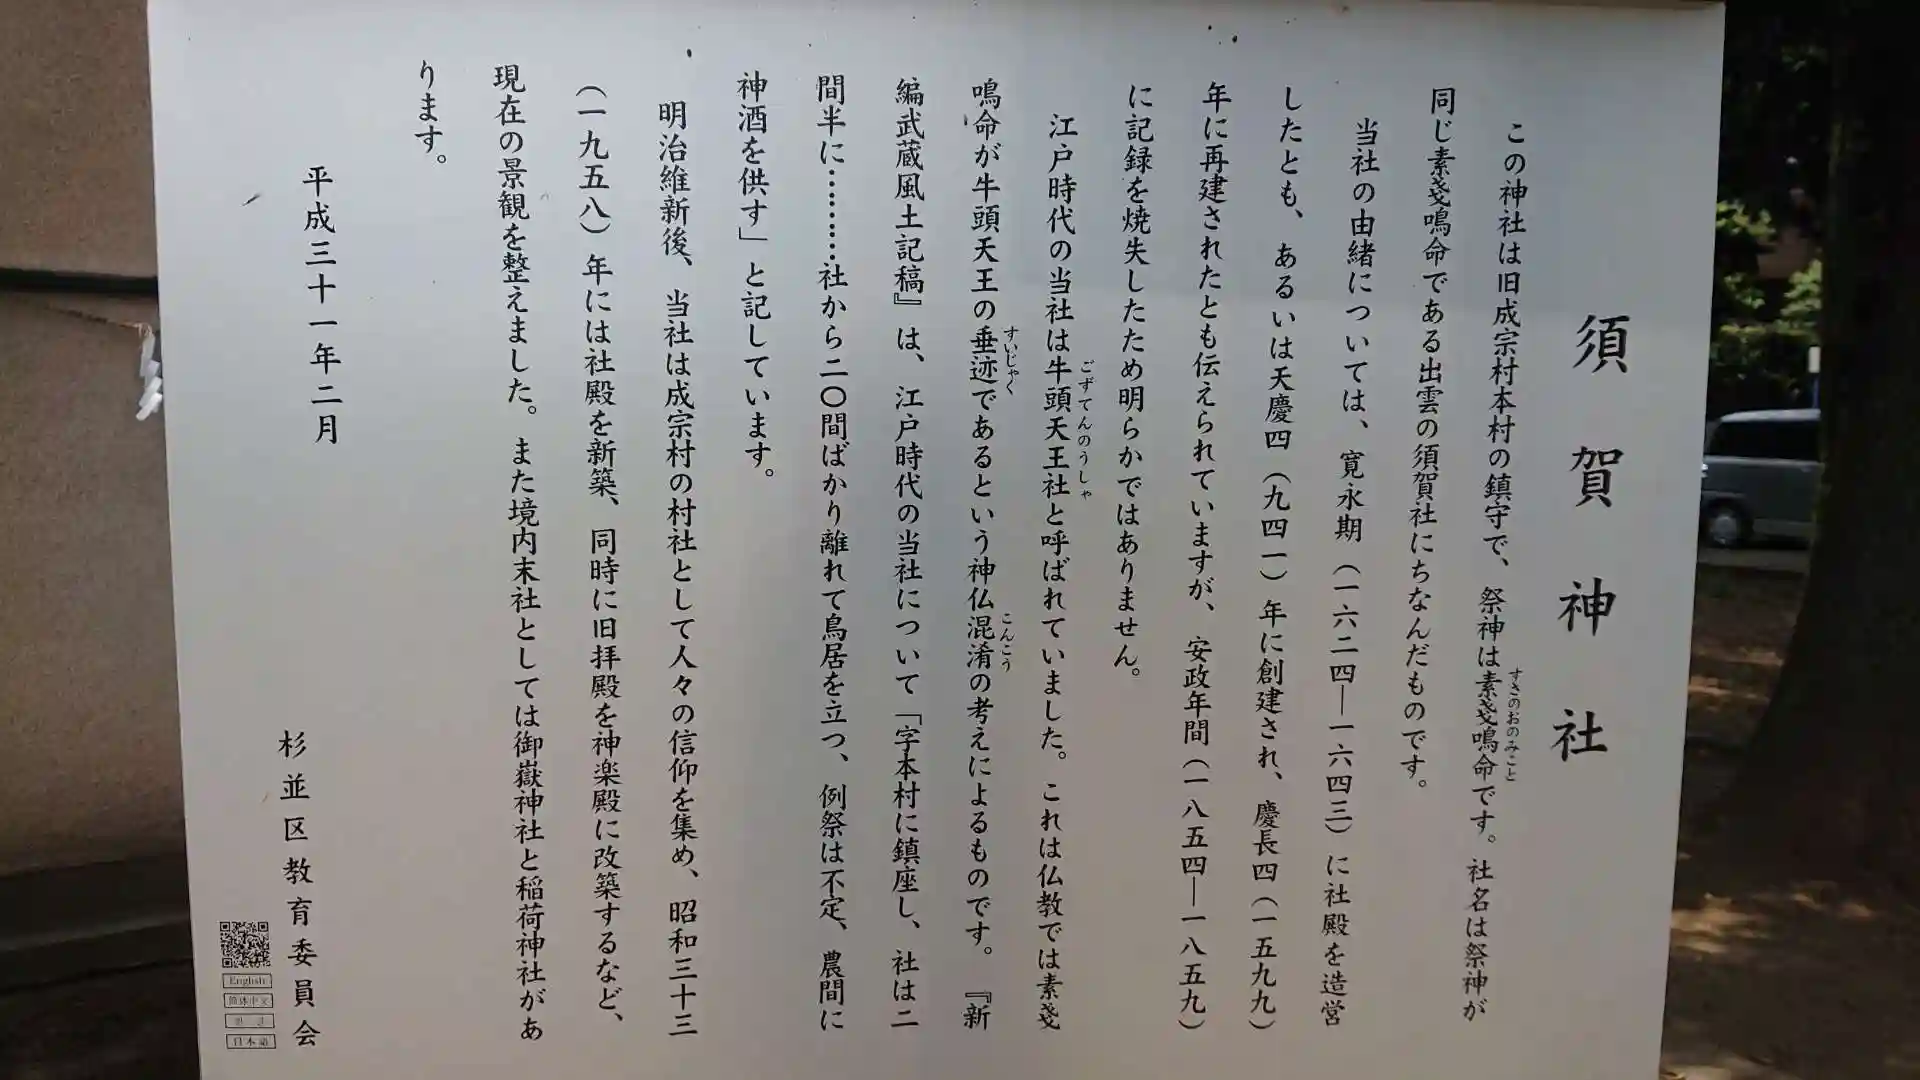 須賀神社
この神社は旧成宗村本村の鎮守で、祭神は素戔鳴命です。社名は祭神が
すさのおのみこと
同じ素戔鳴命である出雲の須賀社にちなんだものです。
当社の由緒については、寛永期(一六二四―一六四三)に社殿を造営
したとも、あるいは天慶四(九四一)年に創建され、慶長四(一五九九)
年に再建されたとも伝えられていますが、安政年間(一八五四―一八五九)
に記録を焼失したため明らかではありません。
江戸時代の当社は牛頭天王社と呼ばれていました。これは仏教では素戔
ごずてんのうしゃ
鳴命が牛頭天王の垂迹であるという神仏混淆の考えによるものです。『新
すいじゃく
こんこう
編武蔵風土記稿』は、江戸時代の当社について「字本村に鎮座し、社は二
間半に………社から二〇間ばかり離れて鳥居を立つ、例祭は不定、農間に
神酒を供す」と記しています。
明治維新後、当社は成宗村の村社として人々の信仰を集め、昭和三十三
(一九五八)年には社殿を新築、同時に旧拝殿を神楽殿に改築するなど、
現在の景観を整えました。また境内末社としては御嶽神社と稲荷神社があ
ります。
平成三十一年二月
杉並区教育委員会
English
简体中文
한글
日本語